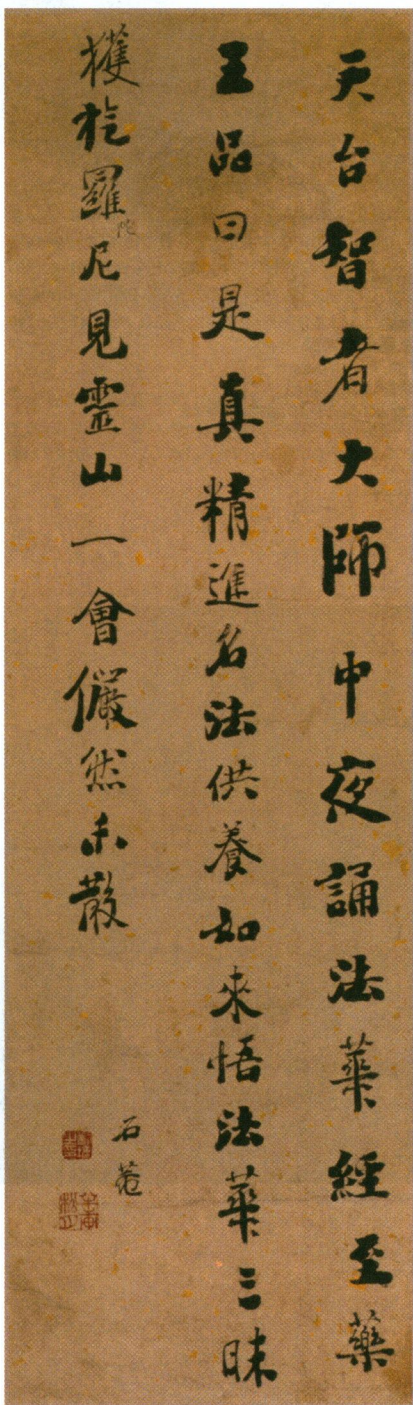 天台智者大師中夜誦法華經至藥
王品曰是真精進名法供養如來悟法華三昧
獲旋羅陀尼見靈山一會儼然未散
石菴